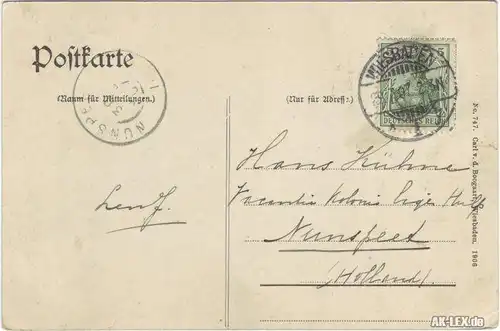 Postkarte
(Raum für Mitteilungen.)
NUNSPE
(Nur für Adresse.)
WIESBADEN
5
DEUTSCHES REICH
Hans Kühne
Vacantie Kolonie Eigen Hulp
Nunspeed
(Holland)
No 747. Carl v. d. Boogaart, Wiesbaden. 1906
AK-LEX.de